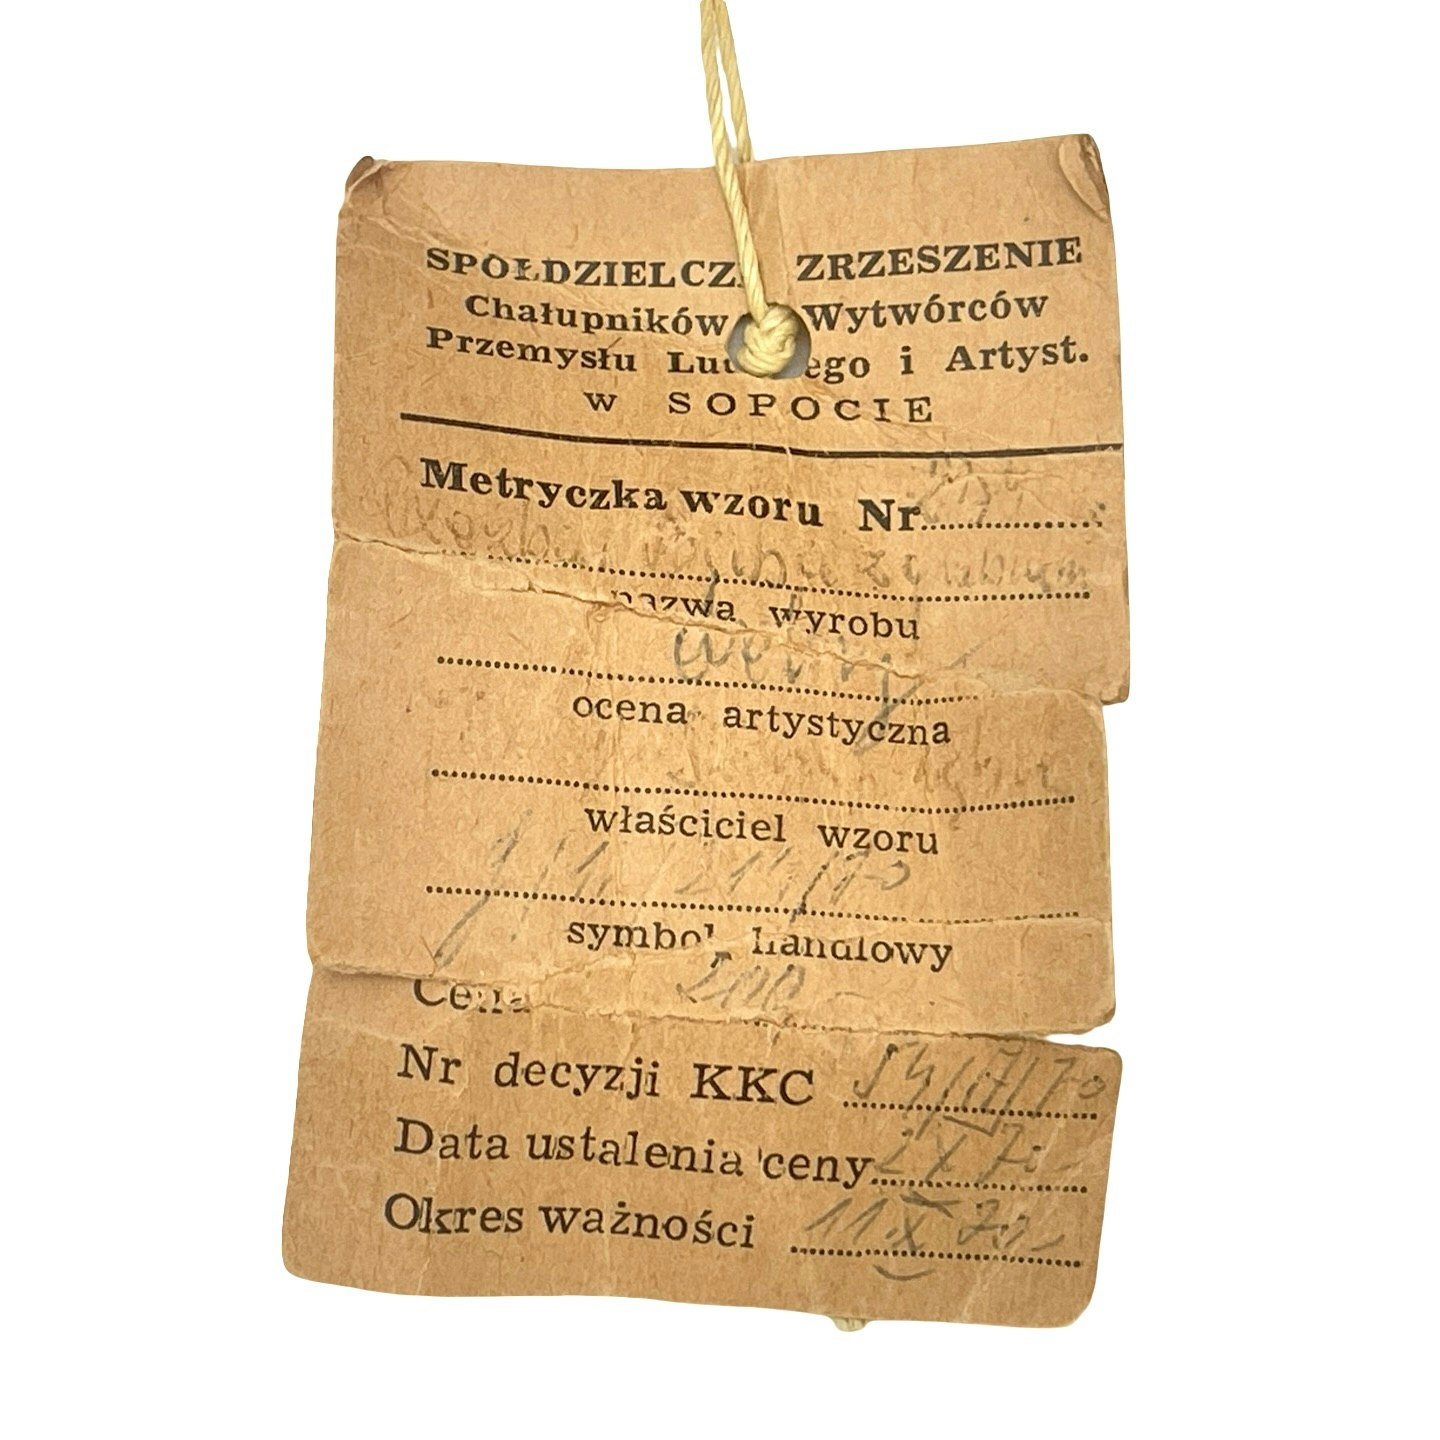 SPÓŁDZIELCZ ZRZESZENIE
Chałupników Wytwórców
Przemysłu Lu ego i Artyst.
w SOPOCIE
Metryczka wzoru Nr
nazwa wyrobu
ocena artystyczna
właściciel wzoru
symbol handlowy
Cena 200
Nr decyzji KKC 54/17/70
Data ustalenia ceny X 70
Okres ważności 11 X 70